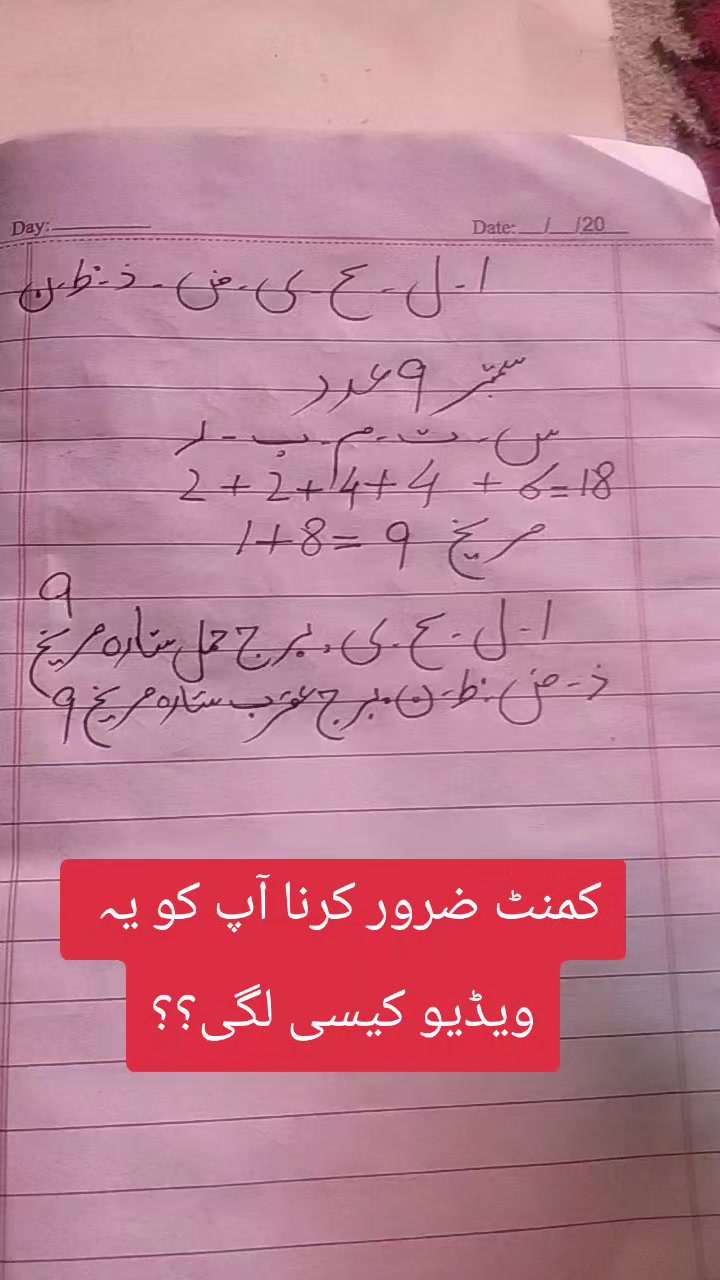 Day: Date: / /20
ا - ل - ع - ی - ض - ذ - ظ - ن
ستمبر 9 عدد
س - ت - م - ب - ر
2 + 2 + 4 + 4 + 6 = 18
1+8 = 9 مریخ
9
ا - ل - ع - ی - برج حمل ستارہ مریخ
ذ - ض - ظ - ن - برج عقرب ستارہ مریخ 9
کمنٹ ضرور کرنا آپ کو یہ
ویڈیو کیسی لگی؟؟